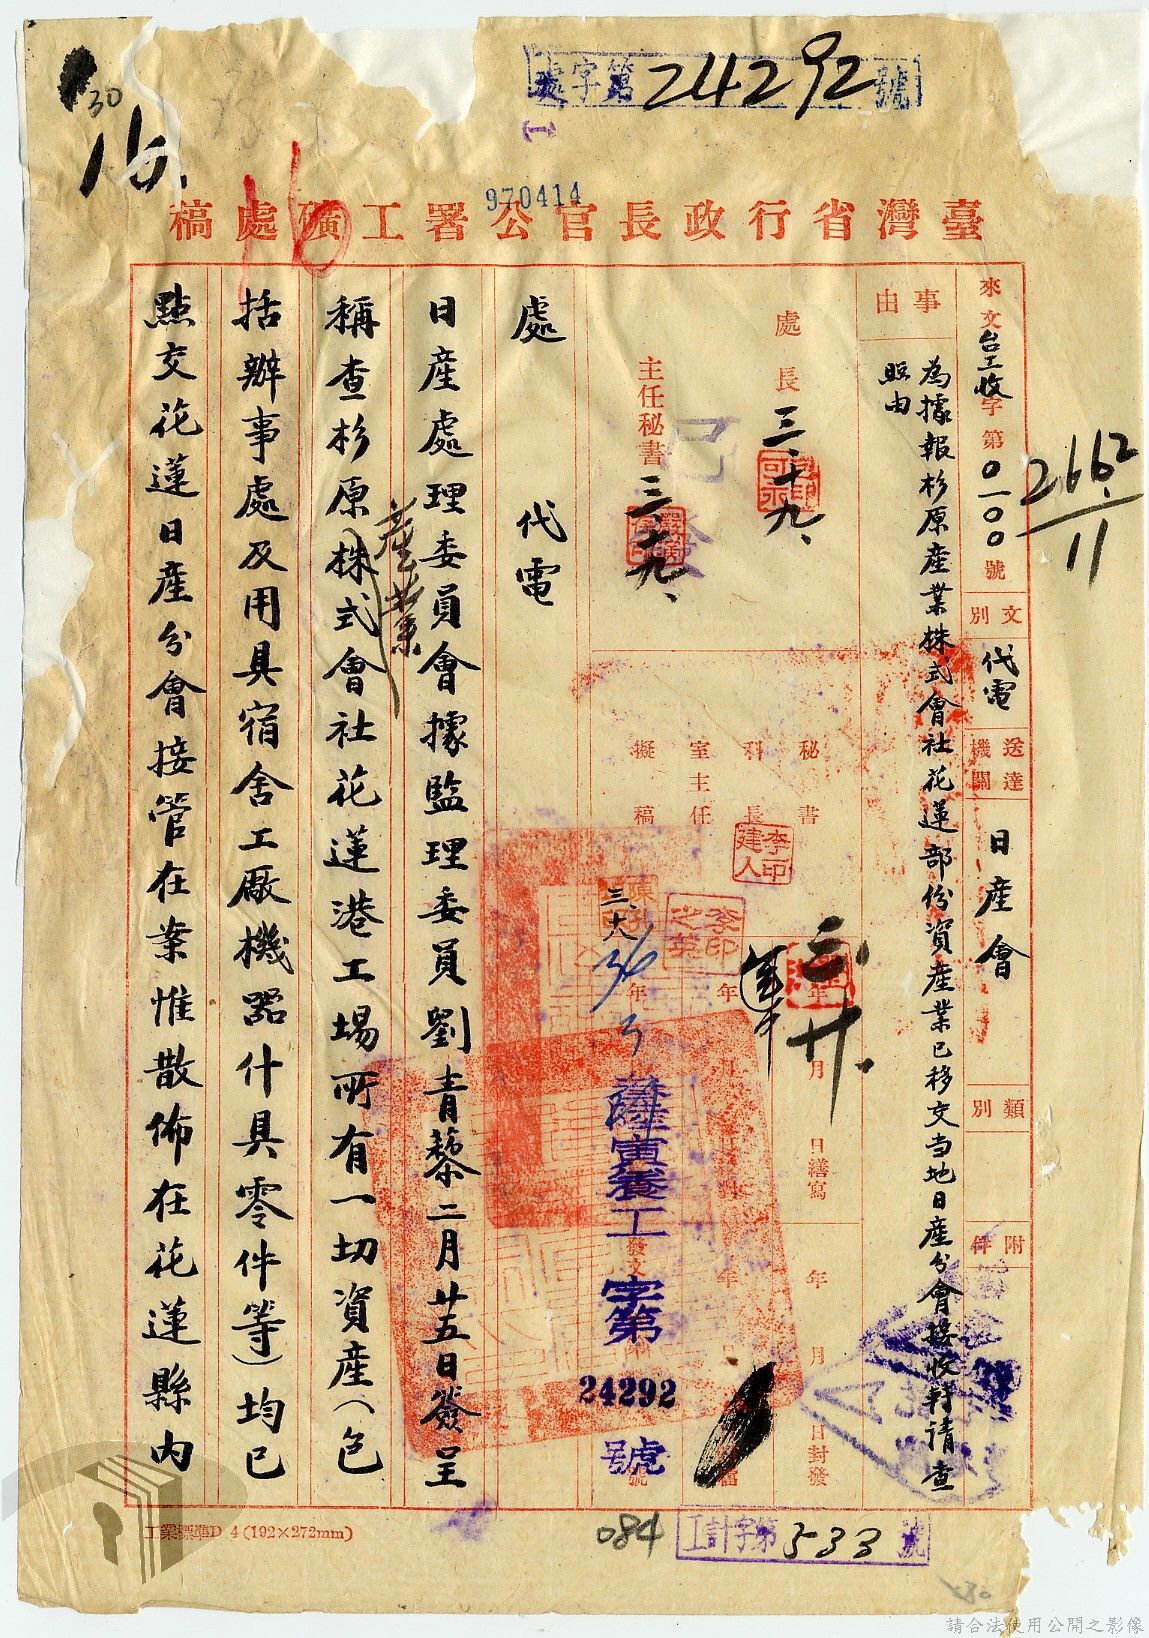 處字第24292號
30
16.
16
970414
臺灣省行政長官公署工礦處稿
來文台工收字第0100號
2662
11
文別
代電
送達機關
日產會
類別
附件
事由
為據報杉原產業株式會社花蓮部份資產業已移交当地日產分會接收轉請查
照由
處長
三、十九、
主任秘書
三、十九、
已發
秘書
科長
室主任
擬稿
李印建人
三、十八
三、廿、
年月日繕寫
年月日封發
36年3月
發文
寅養工字第24292號
處代電
日產處理委員會據監理委員劉青藜二月廿五日簽呈
稱查杉原產業(株式會社花蓮港工場所有一切資產(包
括辦事處及用具宿舍工廠機器什具零件等)均已
點交花蓮日產分會接管在案惟散佈在花蓮縣內
工業標準D 4 (192×272mm)
084
工計字第533號
請合法使用公開之影像